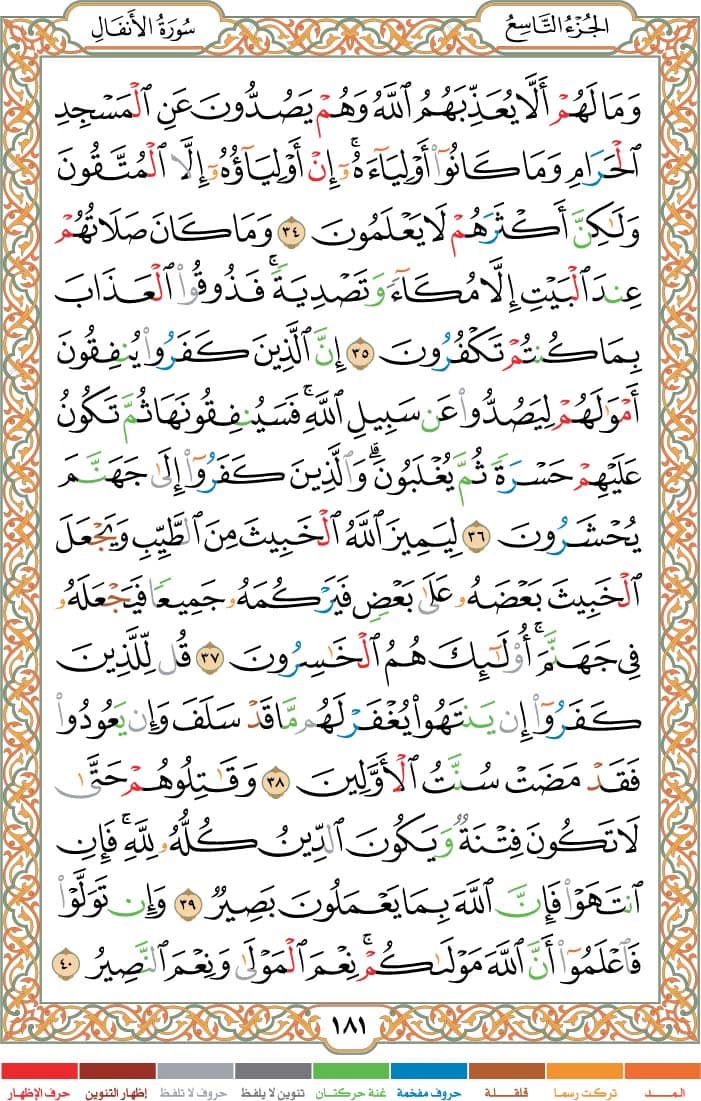 الجُزْءُ التَّاسِعُ
سُورَةُ الأَنفَالِ
وَمَا لَهُمْ أَلَّا يُعَذِّبَهُمُ ٱللَّهُ وَهُمْ يَصُدُّونَ عَنِ ٱلْمَسْجِدِ
ٱلْحَرَامِ وَمَا كَانُوٓا۟ أَوْلِيَآءَهُۥٓ ۚ إِنْ أَوْلِيَآؤُهُۥٓ إِلَّا ٱلْمُتَّقُونَ
وَلَـٰكِنَّ أَكْثَرَهُمْ لَا يَعْلَمُونَ ٣٤ وَمَا كَانَ صَلَاتُهُمْ
عِندَ ٱلْبَيْتِ إِلَّا مُكَآءً وَتَصْدِيَةً ۚ فَذُوقُوا۟ ٱلْعَذَابَ
بِمَا كُنتُمْ تَكْفُرُونَ ٣٥ إِنَّ ٱلَّذِينَ كَفَرُوا۟ يُنفِقُونَ
أَمْوَٰلَهُمْ لِيَصُدُّوا۟ عَن سَبِيلِ ٱللَّهِ ۚ فَسَيُنفِقُونَهَا ثُمَّ تَكُونُ
عَلَيْهِمْ حَسْرَةً ثُمَّ يُغْلَبُونَ ۗ وَٱلَّذِينَ كَفَرُوٓا۟ إِلَىٰ جَهَنَّمَ
يُحْشَرُونَ ٣٦ لِيَمِيزَ ٱللَّهُ ٱلْخَبِيثَ مِنَ ٱلطَّيِّبِ وَيَجْعَلَ
ٱلْخَبِيثَ بَعْضَهُۥ عَلَىٰ بَعْضٍ فَيَرْكُمَهُۥ جَمِيعًا فَيَجْعَلَهُۥ
فِى جَهَنَّمَ ۚ أُو۟لَـٰٓئِكَ هُمُ ٱلْخَـٰسِرُونَ ٣٧ قُل لِّلَّذِينَ
كَفَرُوٓا۟ إِن يَنتَهُوا۟ يُغْفَرْ لَهُم مَّا قَدْ سَلَفَ وَإِن يَعُودُوا۟
فَقَدْ مَضَتْ سُنَّتُ ٱلْأَوَّلِينَ ٣٨ وَقَـٰتِلُوهُمْ حَتَّىٰ
لَا تَكُونَ فِتْنَةٌ وَيَكُونَ ٱلدِّينُ كُلُّهُۥ لِلَّهِ ۚ فَإِنِ
ٱنتَهَوْا۟ فَإِنَّ ٱللَّهَ بِمَا يَعْمَلُونَ بَصِيرٌ ٣٩ وَإِن تَوَلَّوْا۟
فَٱعْلَمُوٓا۟ أَنَّ ٱللَّهَ مَوْلَىٰكُمْ ۚ نِعْمَ ٱلْمَوْلَىٰ وَنِعْمَ ٱلنَّصِيرُ ٤٠
١٨١
المــــد
تركت رسما
قلقــلة
حروف مفخمة
غنة حركتان
تنوين لا يلفظ
حروف لا تلفظ
إظهار التنوين
حرف الإظهار